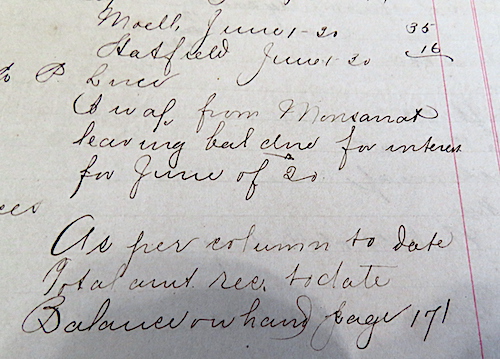 Moell, June 1-20 35
Hatfield June 1-20 16
to P.
from Monsanat
leaving bal due for interest
for June of 20
As per column to date
Total amt rec. to date
Balance on hand page 171